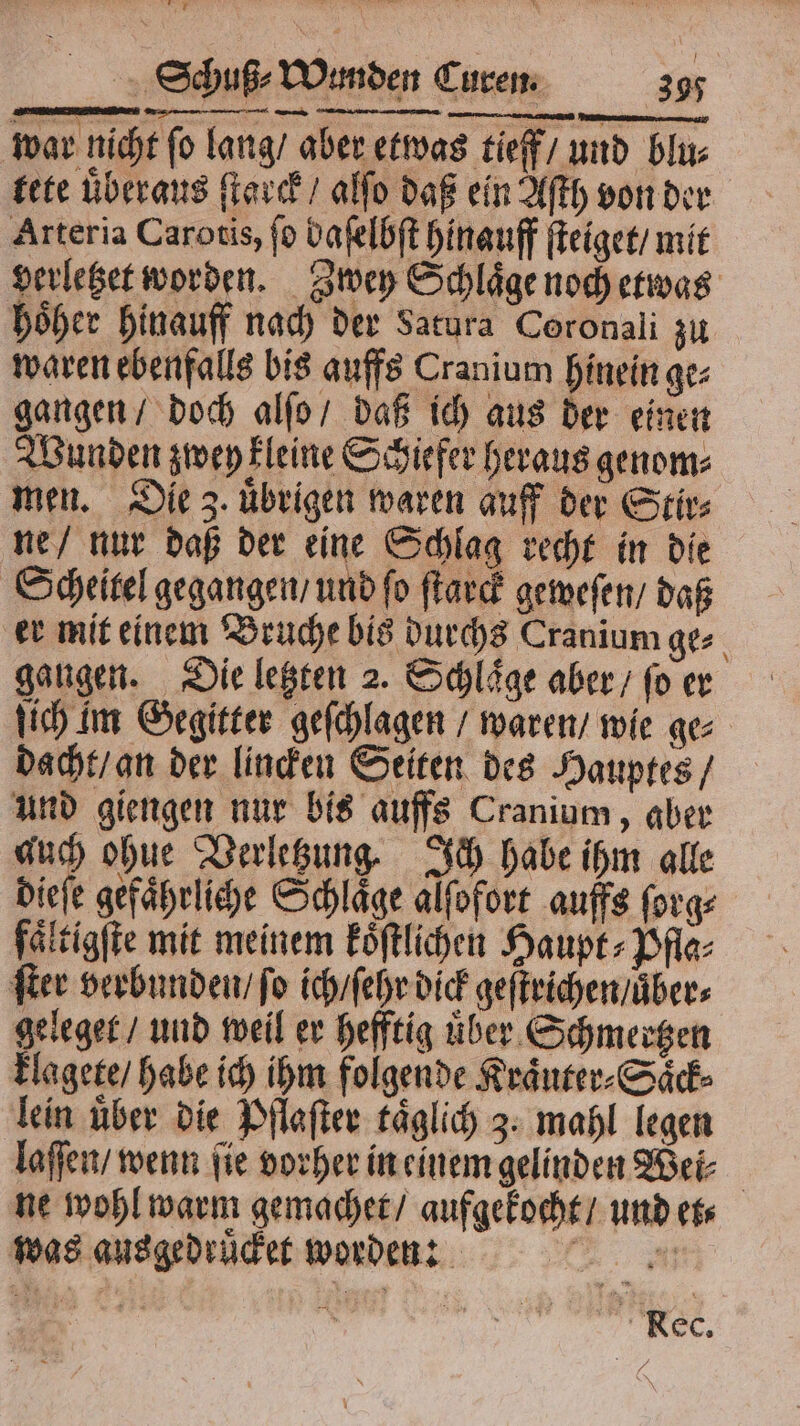 Schuß⸗Wunden Curen. 395
war nicht ſo lang/ aber etwas tieff/ und blu⸗
tete uͤberaus ſtarck/ alſo daß ein Aſth von der
Arteria Carotis, ſo daſelbſt hinauff ſteiget/ mit
verletzet worden. Zwey Schlaͤge noch etwas
hoͤher hinauff nach der Satura Coronali zu
waren ebenfalls bis auffs Cranium hinein ge⸗
gangen/ doch alſo/ daß ich aus der einen
Wunden zwey kleine Schiefer heraus genom⸗
men. Die 3. uͤbrigen waren auff der Stir⸗
ne/ nur daß der eine Schlag recht in die
Scheitel gegangen/ und ſo ſtarck geweſen/ daß
er mit einem Bruche bis durchs Cranium ge⸗
gangen. Die letzten 2. Schlaͤge aber/ ſo er
ſich im Gegitter geſchlagen / waren/ wie ge⸗
dacht/ an der lincken Seiten des Hauptes/
und giengen nur bis auffs Cranium, aber
auch ohue Verletzung. Ich habe ihm alle
dieſe gefaͤhrliche Schlaͤge alſofort auffs ſorg⸗
faͤltigſte mit meinem koͤſtlichen Haupt⸗Pfla⸗
ſter verbunden/ ſo ich/ ſehr dick geſtrichen/ uͤber⸗
geleget/ und weil er hefftig uͤber Schmertzen
klagete/ habe ich ihm folgende Kraͤuter⸗Saͤck⸗
lein uͤber die Pflaſter taͤglich 3. mahl legen
laſſen/ wenn ſie vorher in einem gelinden Wei⸗
ne wohl warm gemachet/ aufgekocht/ und et⸗
was ausgedruͤcket worden:
Rec.